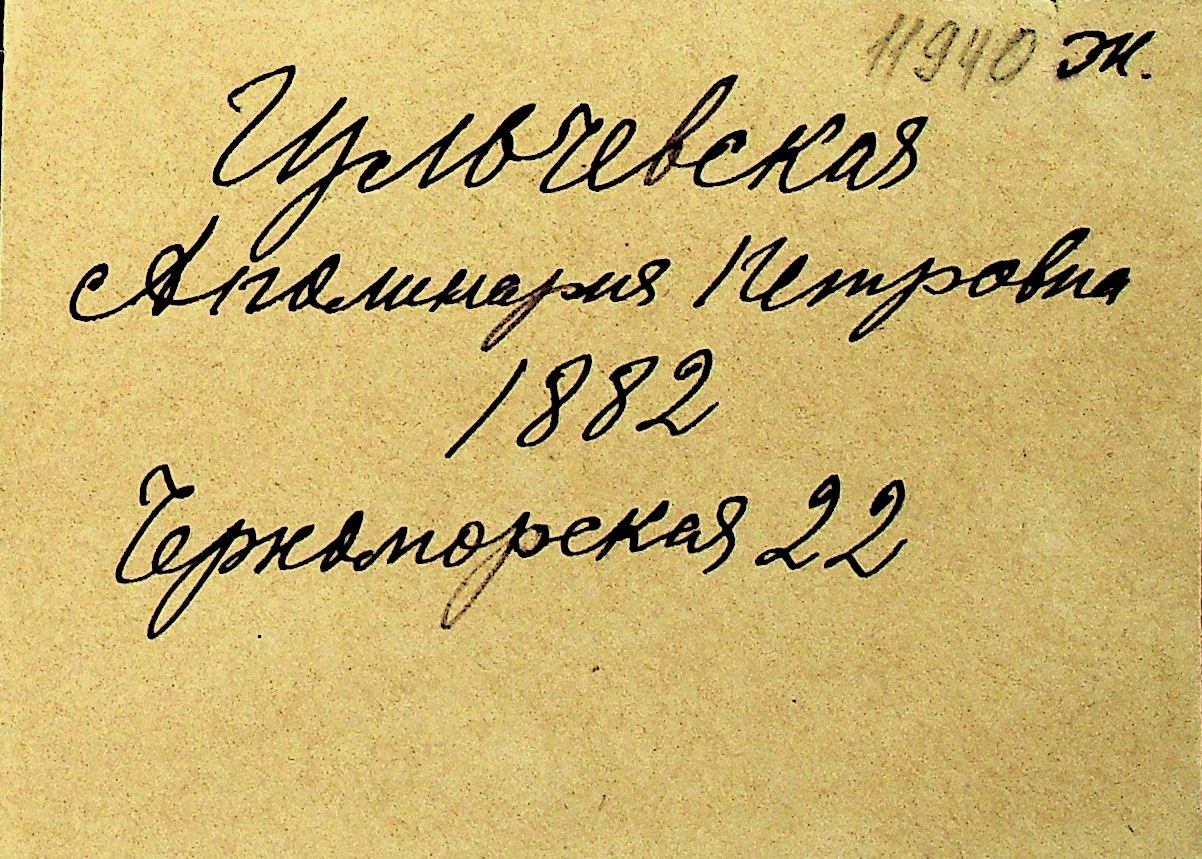 11940 ж.
Цульчевская
Аполинария Петровна
1882
Черноморская 22